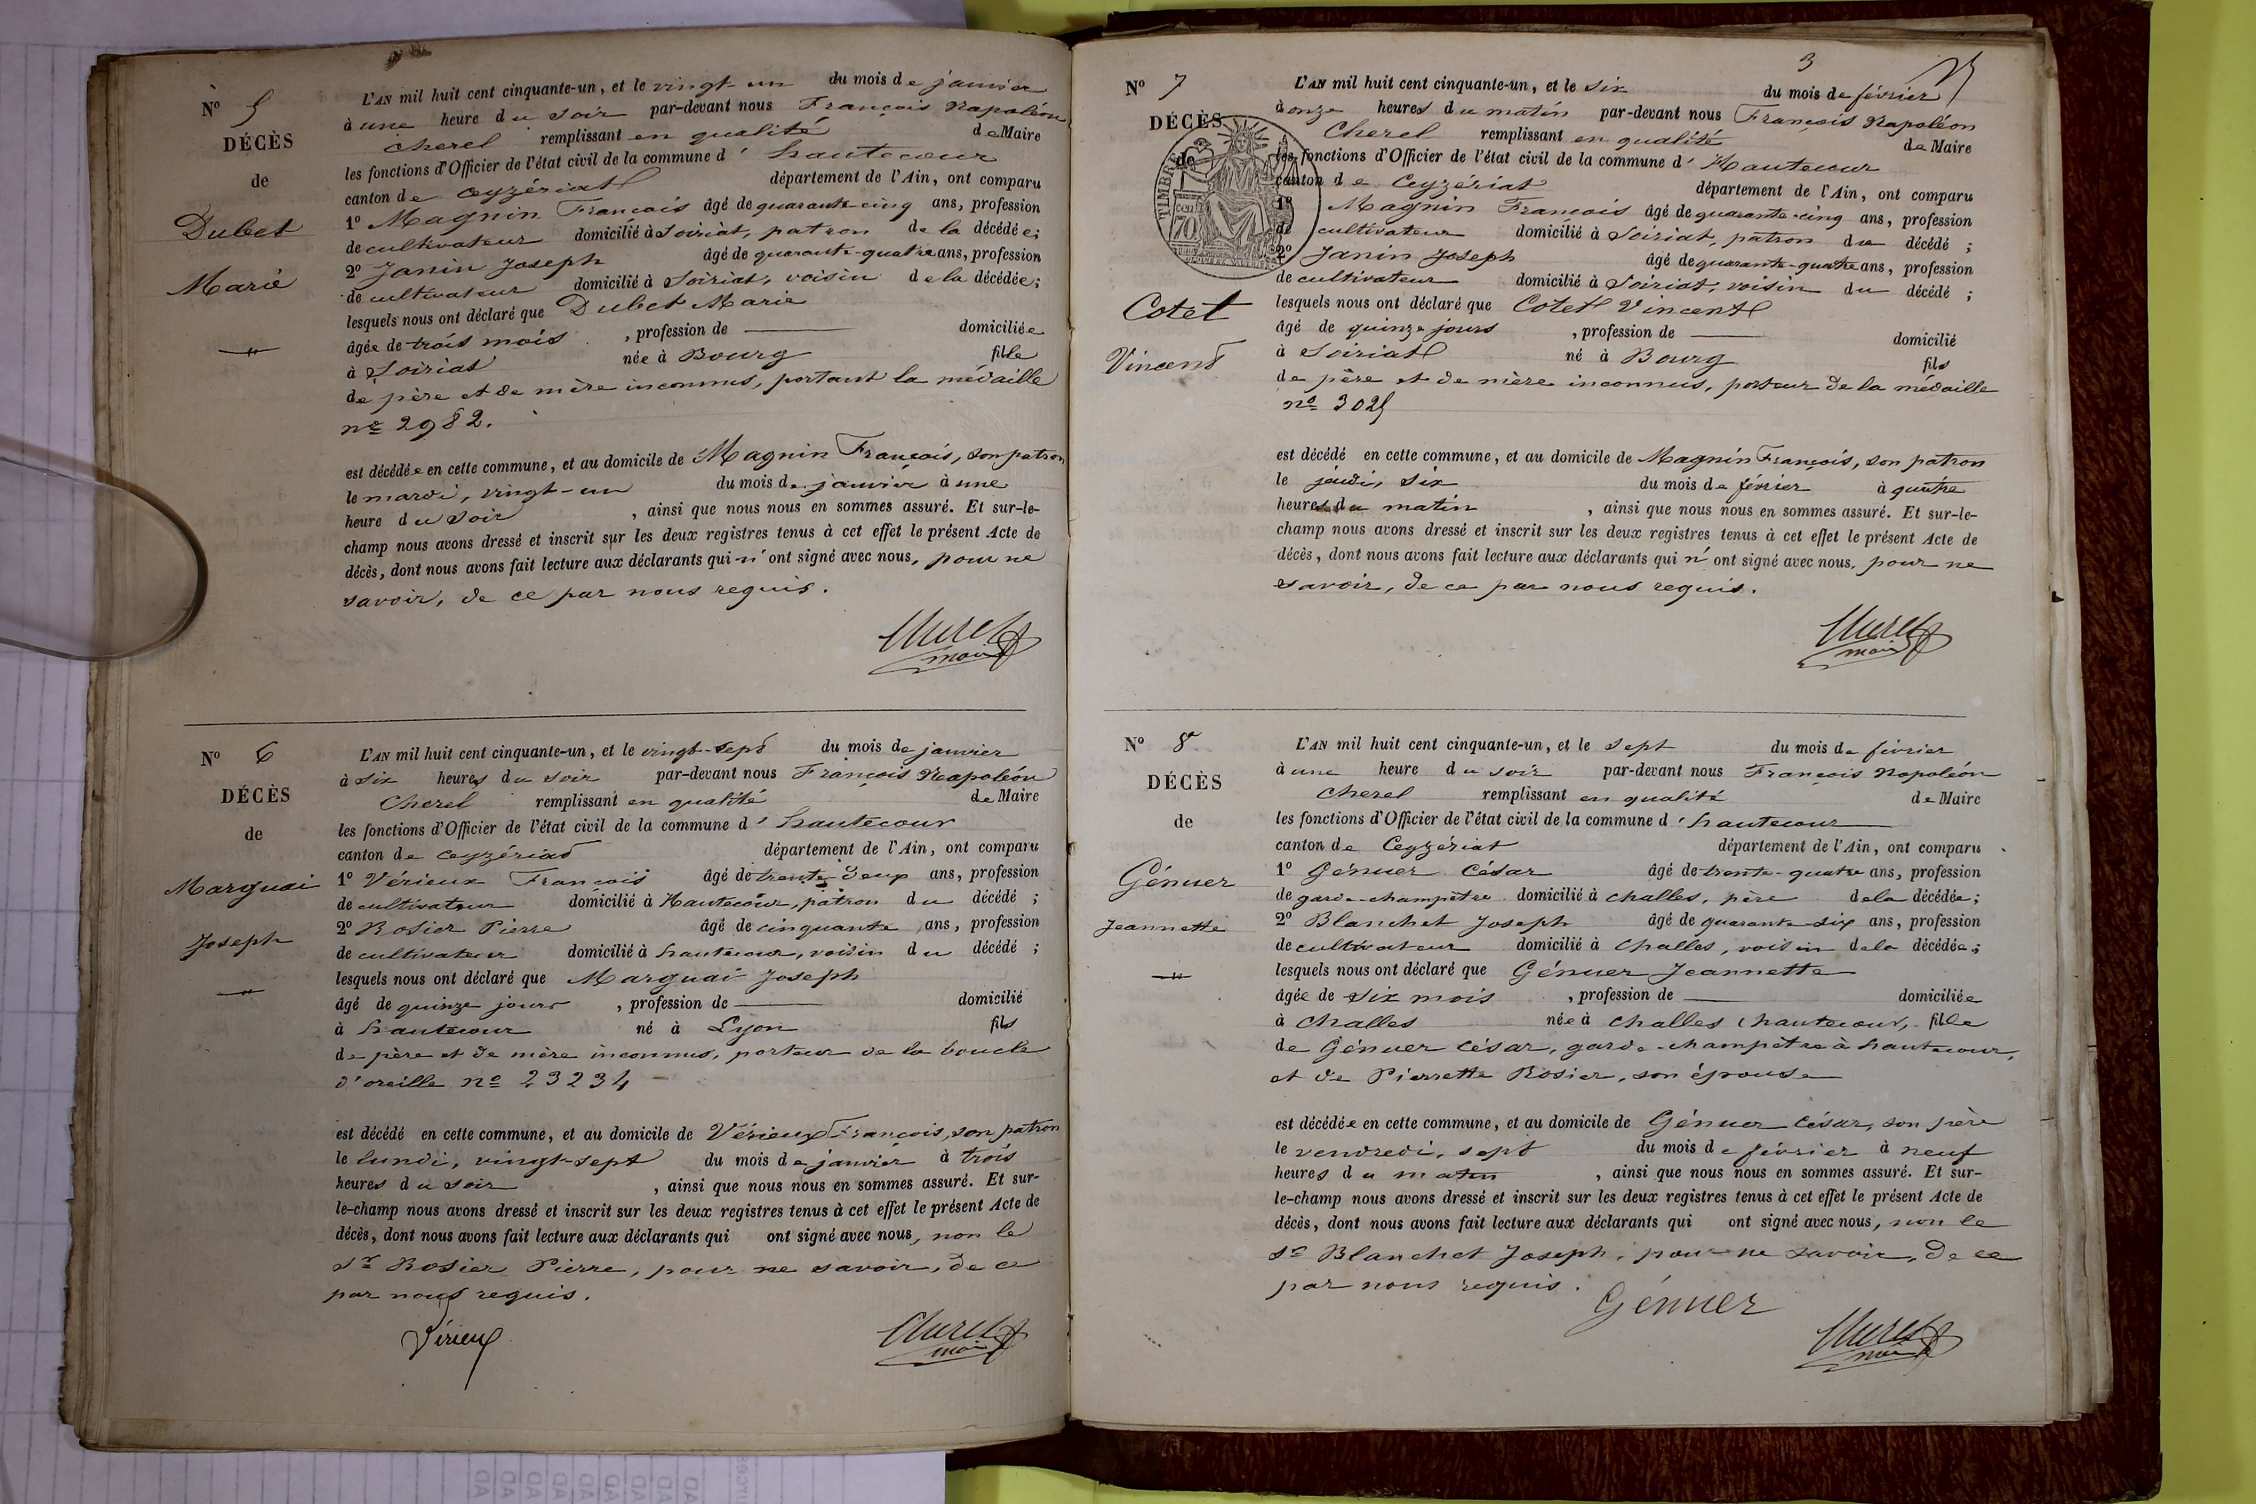 No 5
DÉCÈS
de
Dubet
Marie
L'AN mil huit cent cinquante-un, et le vingt-un du mois de janvier
à une heure du soir par-devant nous François Napoléon
Cherel remplissant en qualité de Maire
les fonctions d'Officier de l'état civil de la commune d' hautecour
canton de Ceyzériat département de l'Ain, ont comparu
1º Magnin François âgé de quarante-cinq ans, profession
de cultivateur domicilié à Soiriat, patron de la décédée;
2º Janin Joseph âgé de quarante-quatre ans, profession
de cultivateur domicilié à Soiriat, voisin de la décédée;
lesquels nous ont déclaré que Dubet Marie
âgée de trois mois , profession de domiciliée
à Soiriat née à Bourg fille
de père et de mère inconnus, portant la médaille
nº 2982.
est décédée en cette commune, et au domicile de Magnin François, son patron
le mardi, vingt-un du mois de janvier à une
heure du soir , ainsi que nous nous en sommes assuré. Et sur-le-
champ nous avons dressé et inscrit sur les deux registres tenus à cet effet le présent Acte de
décès, dont nous avons fait lecture aux déclarants qui n'ont signé avec nous, pour ne
savoir, de ce par nous requis.
Cherel
maire
No 6
DÉCÈS
de
Marguai
Joseph
L'AN mil huit cent cinquante-un, et le vingt-sept du mois de janvier
à six heures du soir par-devant nous François Napoléon
Cherel remplissant en qualité de Maire
les fonctions d'Officier de l'état civil de la commune d' hautecour
canton de Ceyzériat département de l'Ain, ont comparu
1º Vérieux François âgé de trente-deux ans, profession
de cultivateur domicilié à Hautecour, patron du décédé ;
2º Rosier Pierre âgé de cinquante ans, profession
de cultivateur domicilié à hautecour, voisin du décédé ;
lesquels nous ont déclaré que Marguai Joseph
âgé de quinze jours , profession de domicilié
à hautecour né à Lyon fils
de père et de mère inconnus, porteur de la boucle
d'oreille nº 23234
est décédé en cette commune, et au domicile de Vérieux François, son patron
le lundi, vingt-sept du mois de janvier à trois
heures du soir , ainsi que nous nous en sommes assuré. Et sur-
le-champ nous avons dressé et inscrit sur les deux registres tenus à cet effet le présent Acte de
décès, dont nous avons fait lecture aux déclarants qui ont signé avec nous, non le
sr Rosier Pierre, pour ne savoir, de ce
par nous requis.
Vérieux
Cherel
maire
3
No 7
DÉCÈS
de
TIMBRE
70
Cotet
Vincent
L'AN mil huit cent cinquante-un, et le six du mois de février
à onze heures du matin par-devant nous François Napoléon
Cherel remplissant en qualité de Maire
les fonctions d'Officier de l'état civil de la commune d' Hautecour
canton de Ceyzériat département de l'Ain, ont comparu
1º Magnin François âgé de quarante-cinq ans, profession
de cultivateur domicilié à Soiriat, patron du décédé ;
2º Janin Joseph âgé de quarante-quatre ans, profession
de cultivateur domicilié à Soiriat, voisin du décédé ;
lesquels nous ont déclaré que Cotet Vincent
âgé de quinze jours , profession de domicilié
à Soiriat né à Bourg fils
de père et de mère inconnus, porteur de la médaille
nº 3025
est décédé en cette commune, et au domicile de Magnin François, son patron
le jeudi, six du mois de février à quatre
heures du matin , ainsi que nous nous en sommes assuré. Et sur-le-
champ nous avons dressé et inscrit sur les deux registres tenus à cet effet le présent Acte de
décès, dont nous avons fait lecture aux déclarants qui n'ont signé avec nous, pour ne
savoir, de ce par nous requis.
Cherel
maire
No 8
DÉCÈS
de
Génuer
Jeannette
L'AN mil huit cent cinquante-un, et le sept du mois de février
à une heure du soir par-devant nous François Napoléon
Cherel remplissant en qualité de Maire
les fonctions d'Officier de l'état civil de la commune d' hautecour
canton de Ceyzériat département de l'Ain, ont comparu
1º Génuer César âgé de trente-quatre ans, profession
de garde-champêtre domicilié à Challes, père de la décédée;
2º Blanchet Joseph âgé de quarante-six ans, profession
de cultivateur domicilié à Challes, voisin de la décédée;
lesquels nous ont déclaré que Génuer Jeannette
âgée de six mois , profession de domiciliée
à Challes née à Challes, hautecour, fille
de Génuer César, garde-champêtre à hautecour,
et de Pierrette Rosier, son épouse
est décédée en cette commune, et au domicile de Génuer César, son père
le vendredi, sept du mois de février à neuf
heures du matin , ainsi que nous nous en sommes assuré. Et sur-
le-champ nous avons dressé et inscrit sur les deux registres tenus à cet effet le présent Acte de
décès, dont nous avons fait lecture aux déclarants qui ont signé avec nous, non le
sr Blanchet Joseph, pour ne savoir, de ce
par nous requis.
Génuer
Cherel
maire